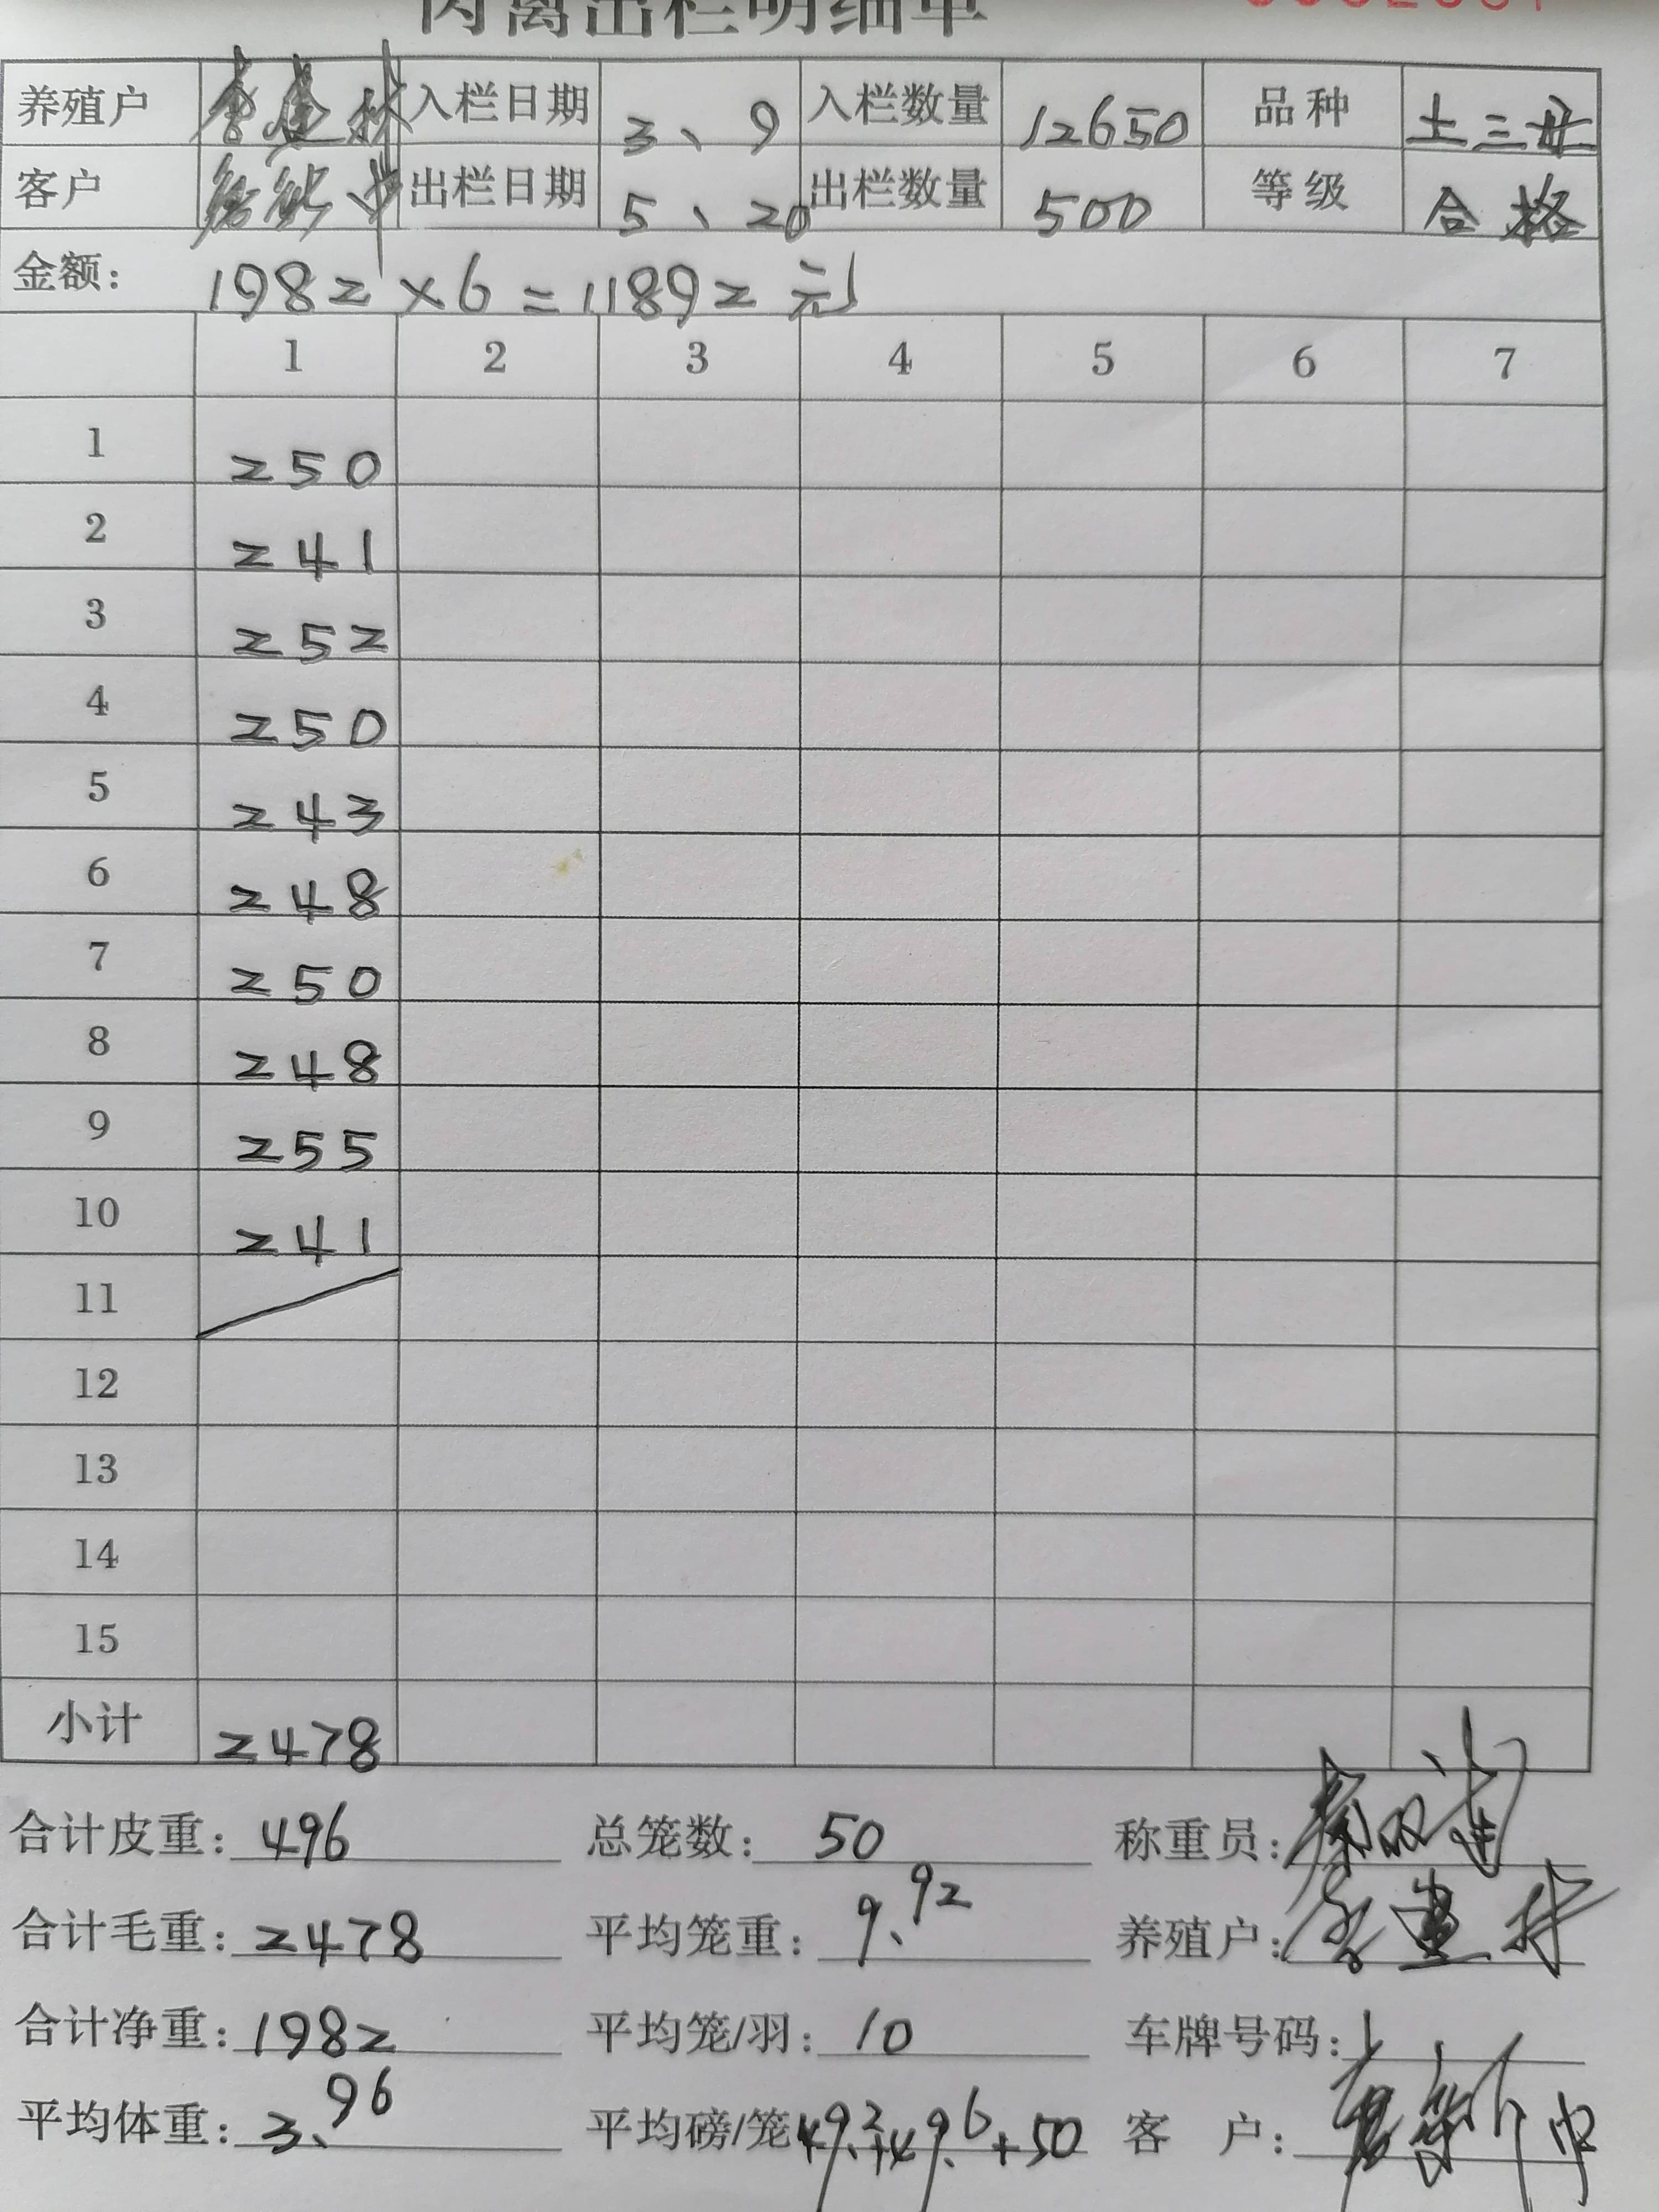 肉禽出栏明细单
养殖户 李建林 入栏日期 3、9 入栏数量 12650 品种 土三廿
客户 出栏日期 5、20 出栏数量 500 等级 合格
金额: 1982×6=11892元
1 2 3 4 5 6 7
1 250
2 241
3 252
4 250
5 243
6 248
7 250
8 248
9 255
10 241
11
12
13
14
15
小计 2478
合计皮重: 496 总笼数: 50 称重员:
合计毛重: 2478 平均笼重: 9.92 养殖户: 李建林
合计净重: 1982 平均笼/羽: 10 车牌号码:
平均体重: 3.96 平均磅/笼 49.2+49.6+50 客 户: